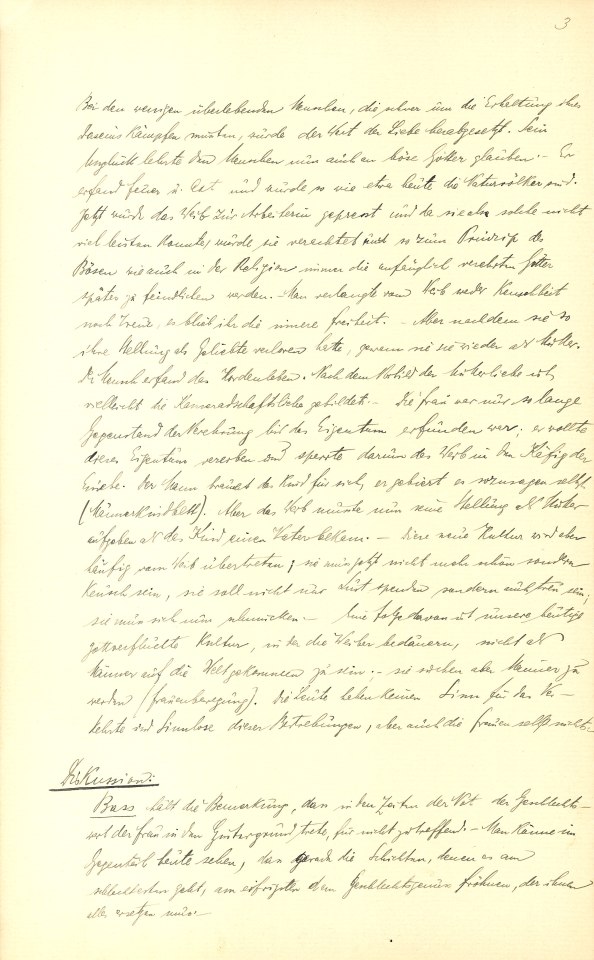 3
Bei den wenigen überlebenden Menschen, die schwer um die Erhaltung ihres
Daseins kämpfen mussten, wurde der Wert der Liebe herabgesetzt. Sein
Unglück lehrte den Menschen nun auch an böse Götter glauben. – Er
erfand Feuer u. und wurde so wie etwa heute die Naturvölker sind.
Jetzt wurde das Weib zur Arbeiterin gepresst und da sie als solche nicht
viel leisten konnte, wurde sie verachtet und so zum Prinzip des
Bösen wie auch in der Religion immer die anfänglich verehrten Götter
später zu feindlichen werden. – Man verlangte vom Weib weder Keuschheit
noch Treue, es blieb ihr die innere Freiheit. – Aber nachdem sie so
ihre Stellung als Geliebte verloren hatte, gewann sie sie wieder als Mutter.
Der Mensch erfand das Hordenleben. Nach dem Vorbild der Mutterliebe ist
vielleicht die Kameradschaftsliebe gebildet. – Die Frau war nur so lange
Gegenstand der Verehrung bis das Eigentum erfunden war: er wollte
dieses Eigentum vererben und sperrte darum das Weib in den Käfig der
Ehe. Der Mann braucht das Kind für sich, er gebiert es sozusagen selbst
(Männerkindbett). Aber das Weib musste nun seine Stellung als Mutter
aufgeben als das Kind einen Vater bekam. – Diese neue Kultur wird aber
häufig vom Weib übertreten; sie muss jetzt nicht mehr schön sondern
keusch sein, sie soll nicht nur Lust spenden sondern auch treu sein;
sie muss sich nun schmücken. – Eine Folge davon ist unsere heutige
gottverfluchte Kultur, in der die Weiber bedauern, nicht als
Männer auf die Welt gekommen zu sein; – sie suchen aber Männer zu
werden (Frauenbewegung). Die Leute haben keinen Sinn für das Ver-
kehrte und Sinnlose dieser Bestrebungen, aber auch die Frauen selbst nicht.
Diskussion:
Bass hält die Bemerkung, dass in den Zeiten der Not der Geschlechts-
wert der Frau in den Hintergrund trete, für nicht zutreffend. – Man könne im
Gegenteil heute sehen, dass gerade die Schichten, denen es am
schlechtesten geht, am eifrigsten dem Geschlechtsgenuss fröhnen, der ihnen
alles ersetzen muss. –